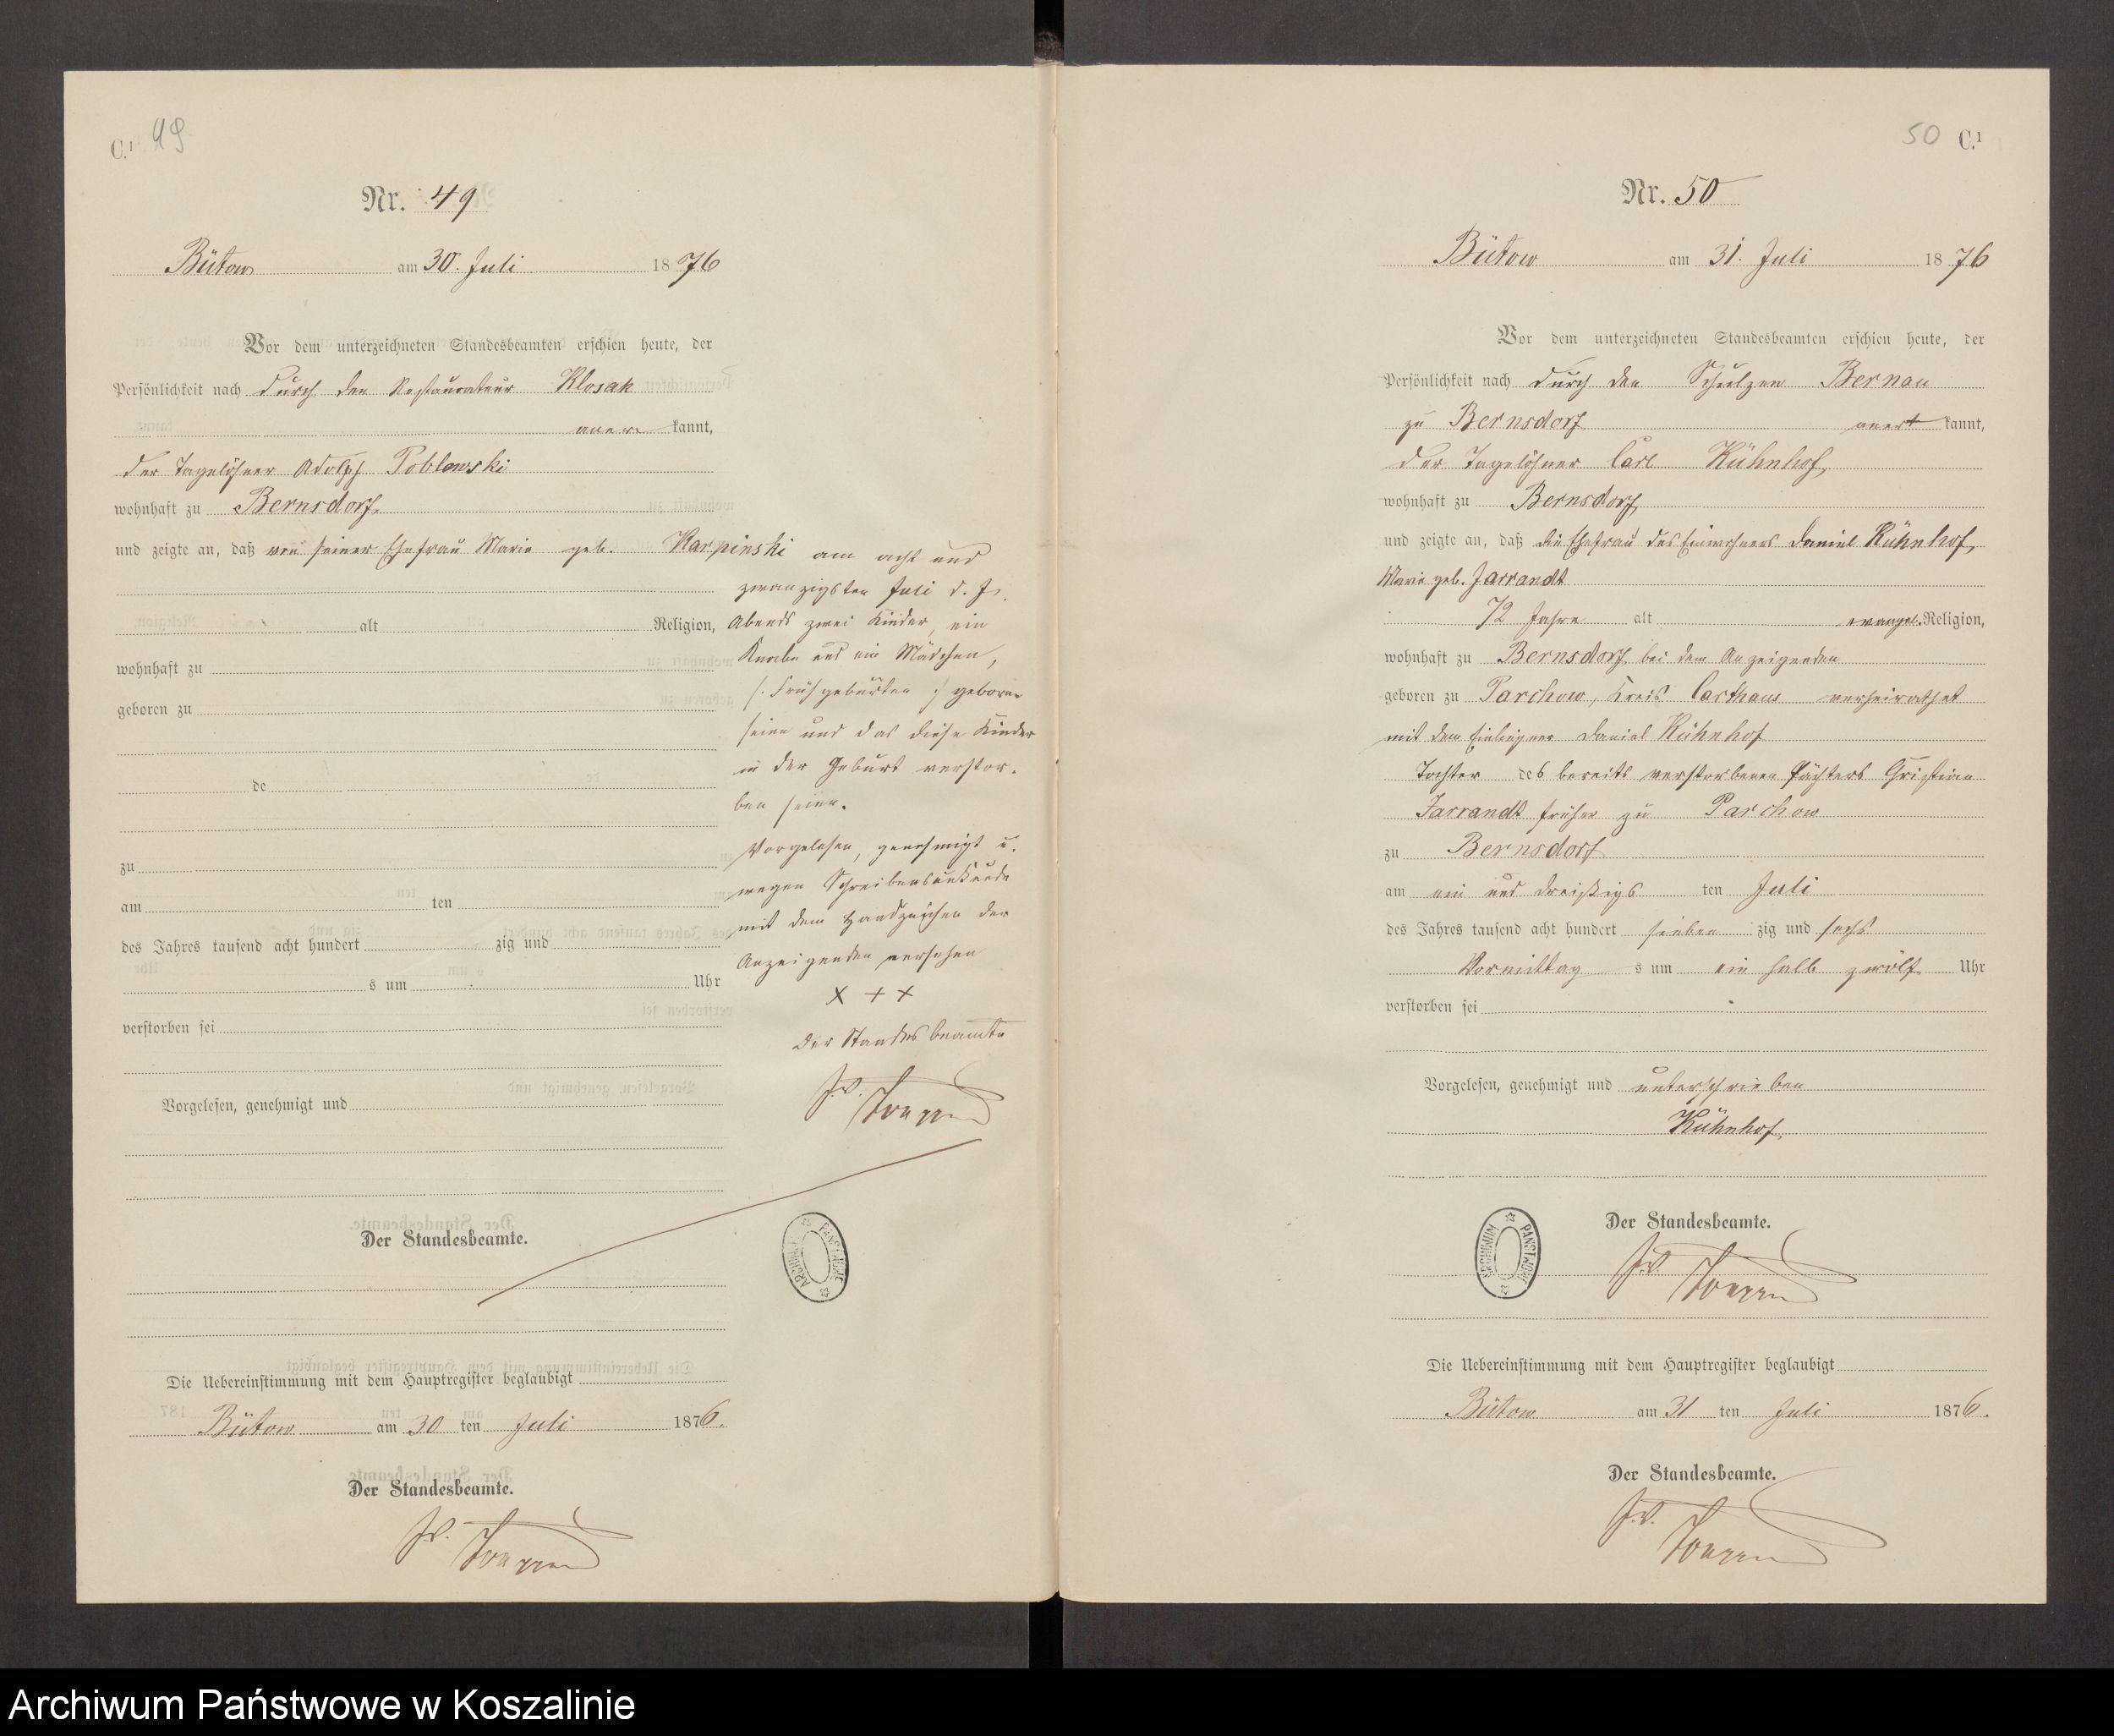 C.¹ 49
Nr. 49
Bütow am 30. Juli 1876
Vor dem unterzeichneten Standesbeamten erschien heute, der
Persönlichkeit nach durch den Restaurateur Klosak
aner kannt,
der Tagelöhner Adolph Poblowski
wohnhaft zu Bernsdorf
und zeigte an, daß von seiner Ehefrau Marie geb. Karpinski am acht und
zwanzigsten Juli d. Js.
alt Religion, Abends zwei Kinder, ein
wohnhaft zu Knabe und ein Mädchen,
geboren zu /: Frühgeburten :/ geboren
seien und das diese Kinder
de in der Geburt verstor-
ben seien.
zu Vorgelesen, genehmigt u.
am ten wegen Schreibensunkunde
mit dem Handzeichen des
des Jahres tausend acht hundert zig und Anzeigenden versehen
s um Uhr
X + X
verstorben sei
Der Standesbeamte
J.V.
Vorgelesen, genehmigt und
Der Standesbeamte.
ARCHIWUM PAŃSTWOWE
Die Uebereinstimmung mit dem Hauptregister beglaubigt
Bütow am 30 ten Juli 1876.
Der Standesbeamte.
J.V.
50 C.¹
Nr. 50
Bütow am 31. Juli 1876
Vor dem unterzeichneten Standesbeamten erschien heute, der
Persönlichkeit nach durch den Schulzen Bernau
zu Bernsdorf anerkannt,
der Tagelöhner Carl Kühnhof
wohnhaft zu Bernsdorf
und zeigte an, daß die Ehefrau des Einwohners Daniel Kühnhof,
Marie geb. Jarrandt
72 Jahre alt evangel. Religion,
wohnhaft zu Bernsdorf bei dem Anzeigenden
geboren zu Parchow, Kreis Carthaus verheirathet
mit dem Einlieger Daniel Kühnhof
Tochter des bereits verstorbenen Pächters Christian
Jarrandt früher zu Parchow
zu Bernsdorf
am ein und dreißigs ten Juli
des Jahres tausend acht hundert sieben zig und sechs
Vormittag s um ein halb zwölf Uhr
verstorben sei
Vorgelesen, genehmigt und unterschrieben
Kühnhof
Der Standesbeamte.
ARCHIWUM PAŃSTWOWE
J.V.
Die Uebereinstimmung mit dem Hauptregister beglaubigt
Bütow am 31 ten Juli 1876.
Der Standesbeamte.
J.V.
Archiwum Państwowe w Koszalinie